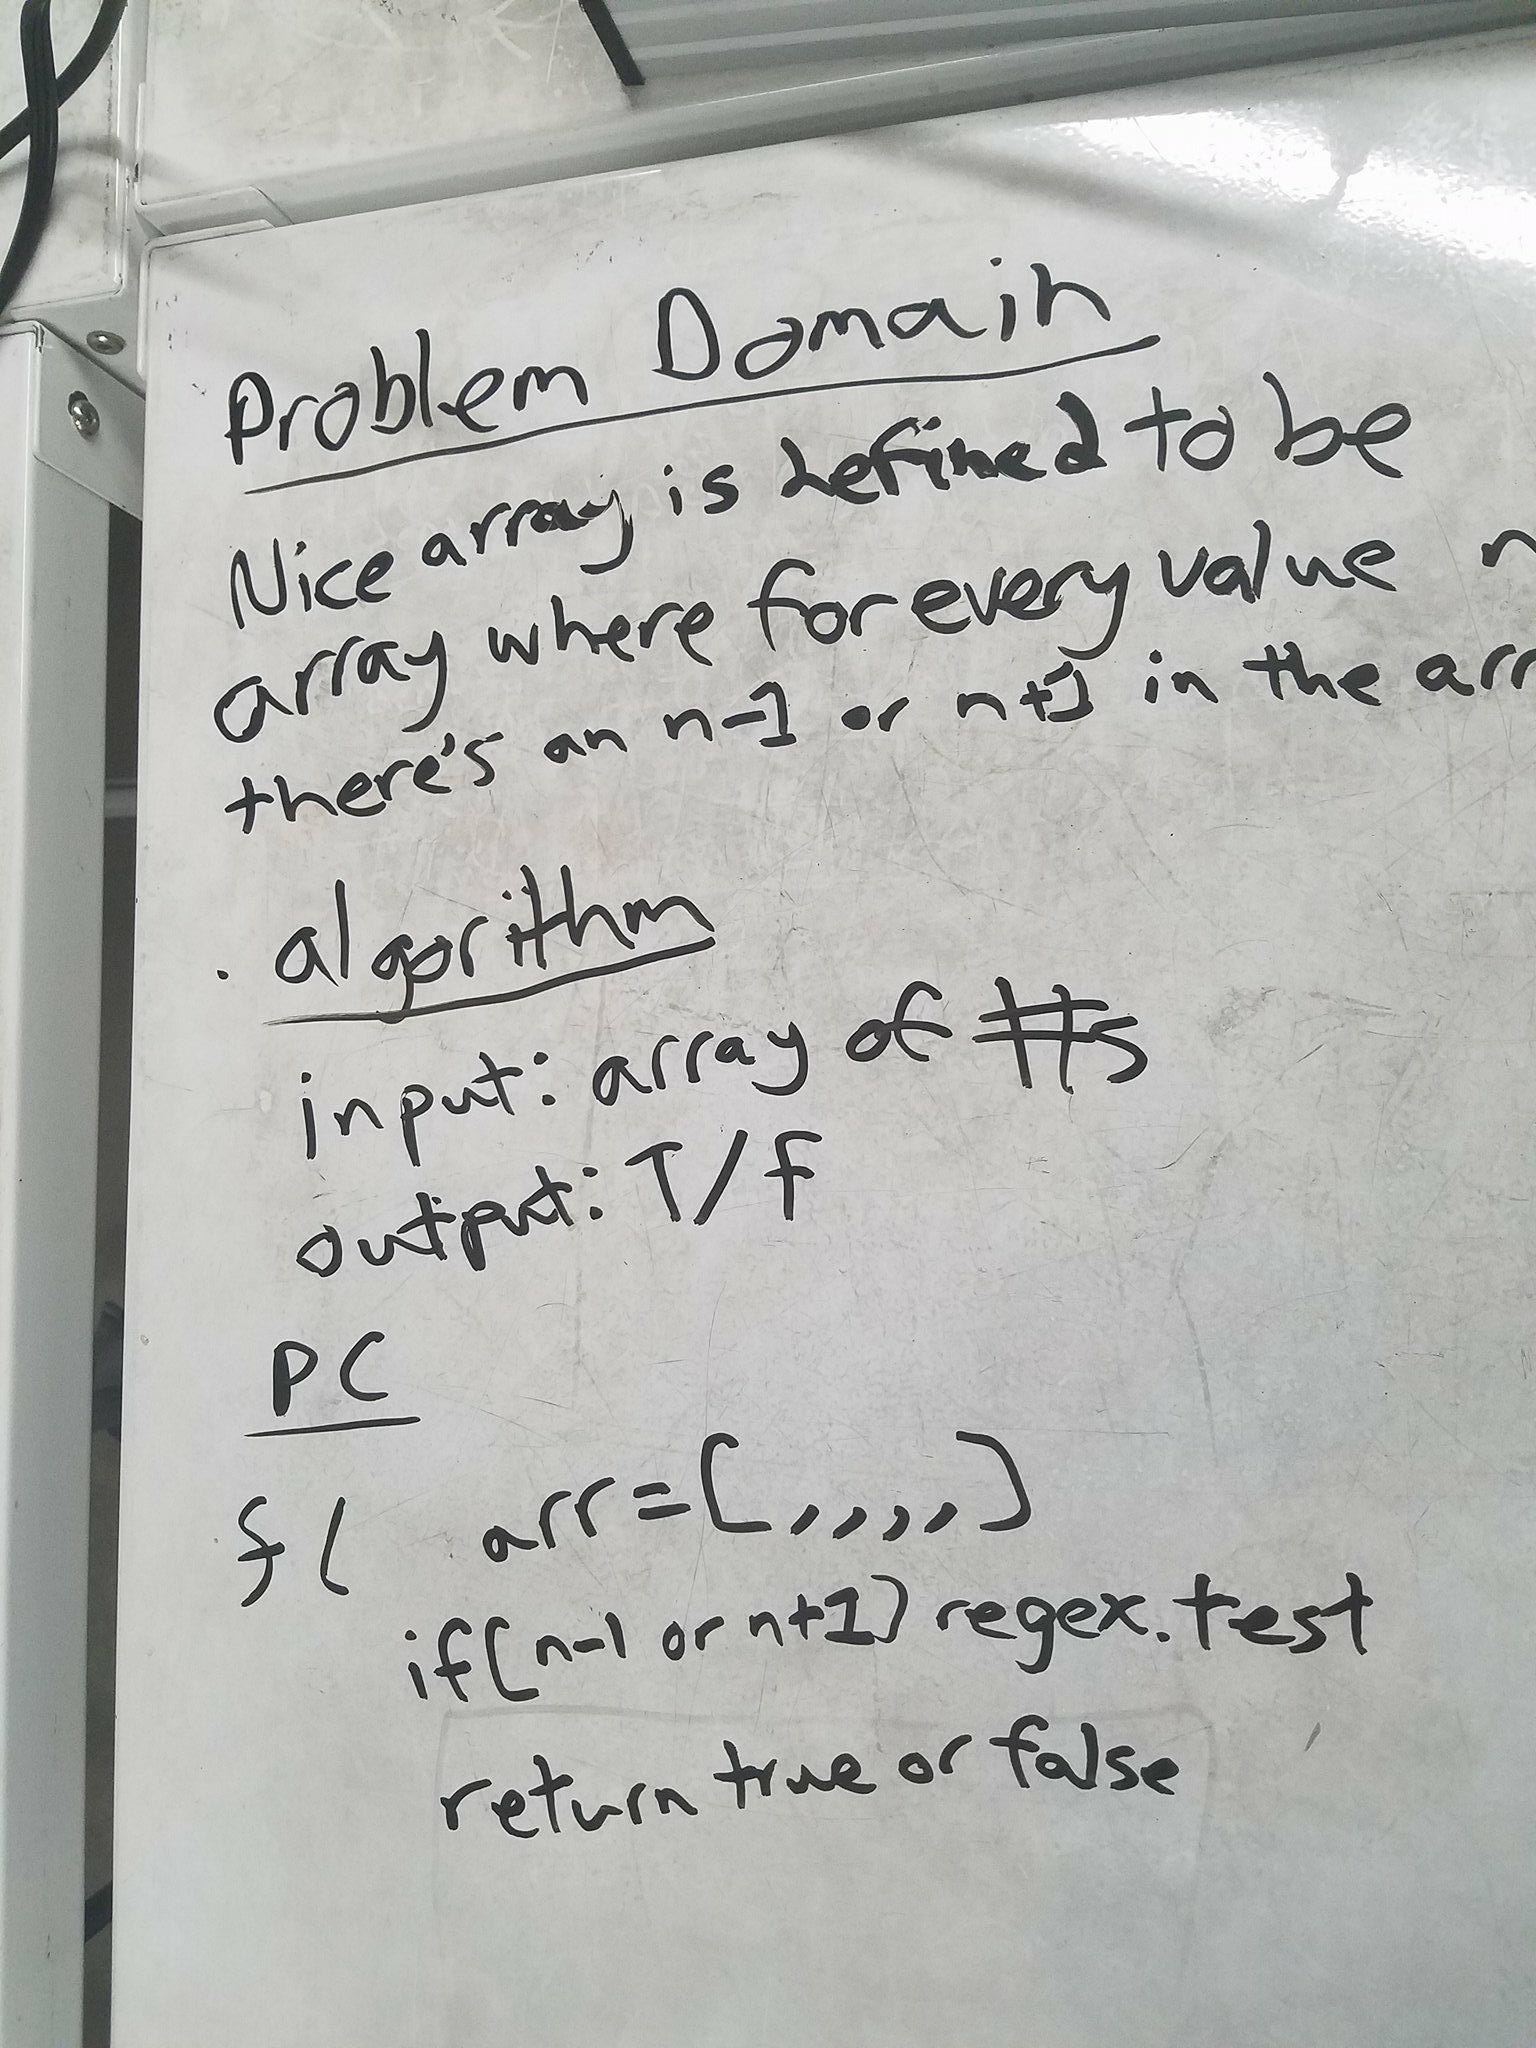 Problem Domain
Nice array is defined to be
array where for every value n
there's an n-1 or n+1 in the arr
algorithm
input: array of #s
output: T/F
PC
f( arr=[,,,,,]
if(n-1 or n+1) regex.test
return true or false